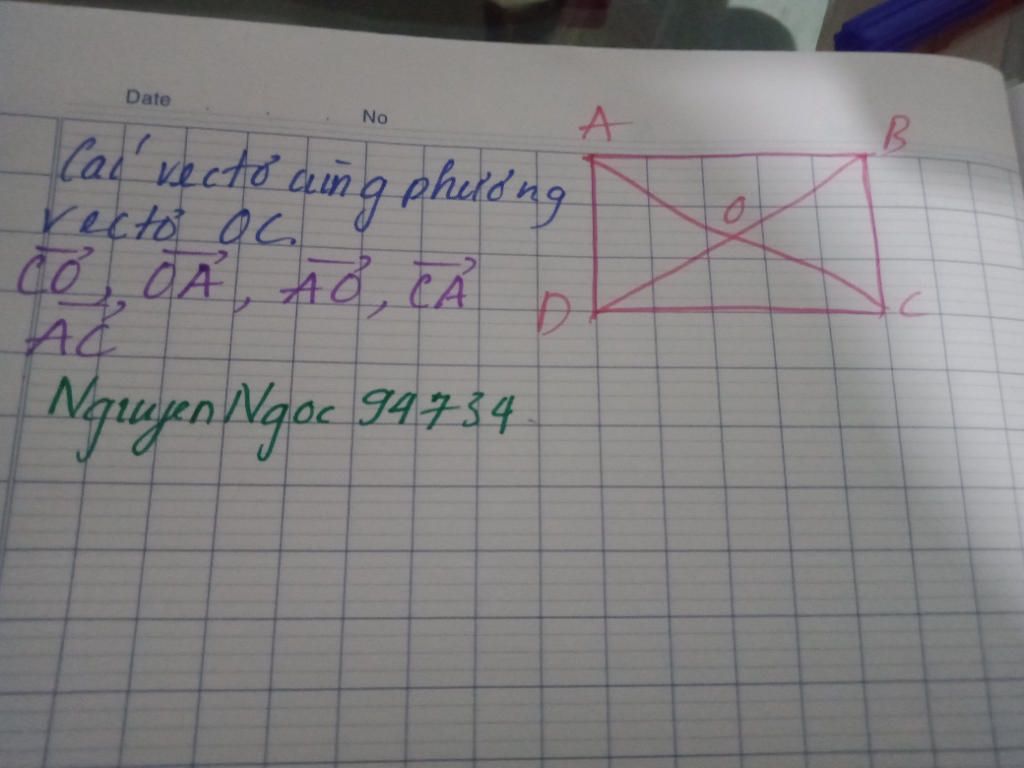 Date
No
Các vectơ cùng phương
vectơ OC.
CO, OA, AO, CA
AC
Nguyen Ngoc 94734
A
B
O
D
C